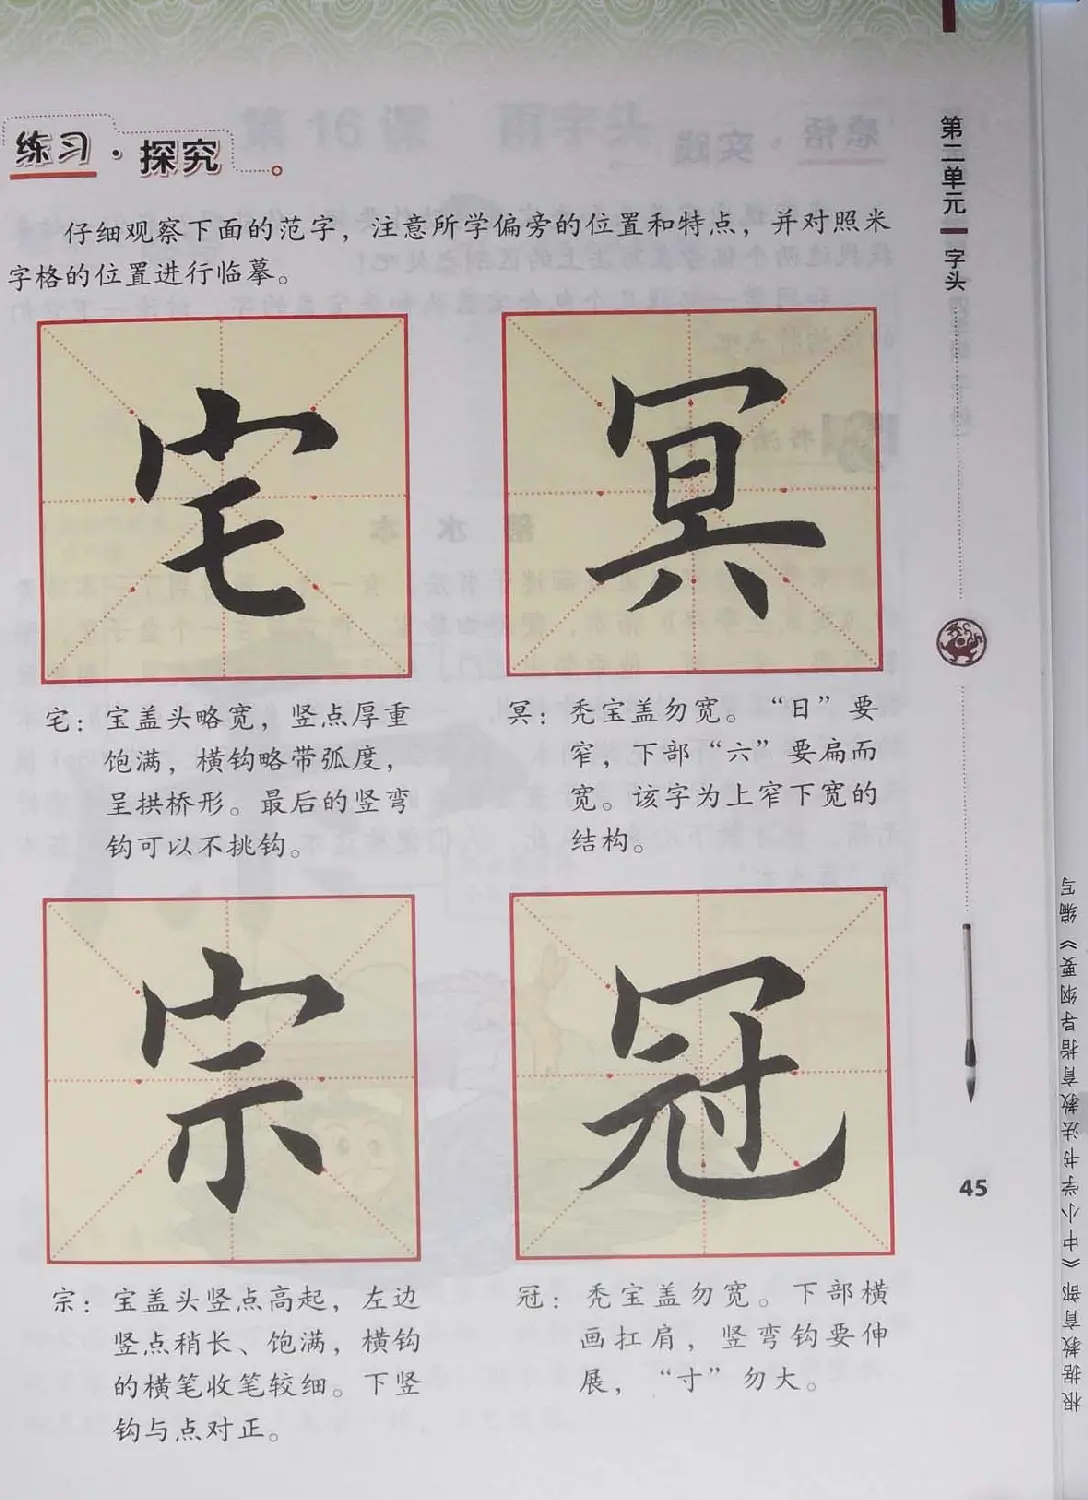 练习·探究
仔细观察下面的范字，注意所学偏旁的位置和特点，并对照米
字格的位置进行临摹。
宅
冥
宅：宝盖头略宽，竖点厚重
饱满，横钩略带弧度，
呈拱桥形。最后的竖弯
钩可以不挑钩。
冥：秃宝盖勿宽。“日”要
窄，下部“六”要扁而
宽。该字为上窄下宽的
结构。
宗
冠
宗：宝盖头竖点高起，左边
竖点稍长、饱满，横钩
的横笔收笔较细。下竖
钩与点对正。
冠：秃宝盖勿宽。下部横
画扛肩，竖弯钩要伸
展，“寸”勿大。
第二单元
字头
45
根据教育部《中小学书法教育指导纲要》编写